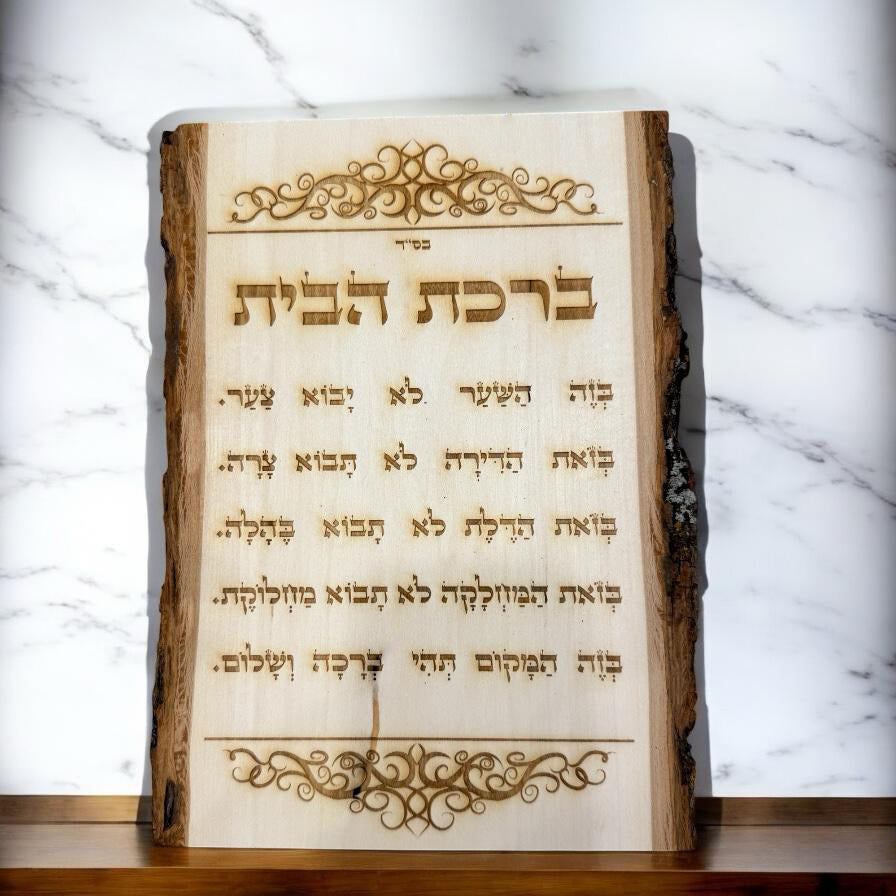 בס״ד
בִּרְכַּת הַבַּיִת
בְּזֶה הַשַּׁעַר לֹא יָבוֹא צַעַר.
בְּזֹאת הַדִּירָה לֹא תָּבוֹא צָרָה.
בְּזֹאת הַדֶּלֶת לֹא תָבוֹא בֶּהָלָה.
בְּזֹאת הַמַּחְלָקָה לֹא תָבוֹא מַחְלוֹקֶת.
בְּזֶה הַמָּקוֹם תְּהִי בְּרָכָה וְשָׁלוֹם.